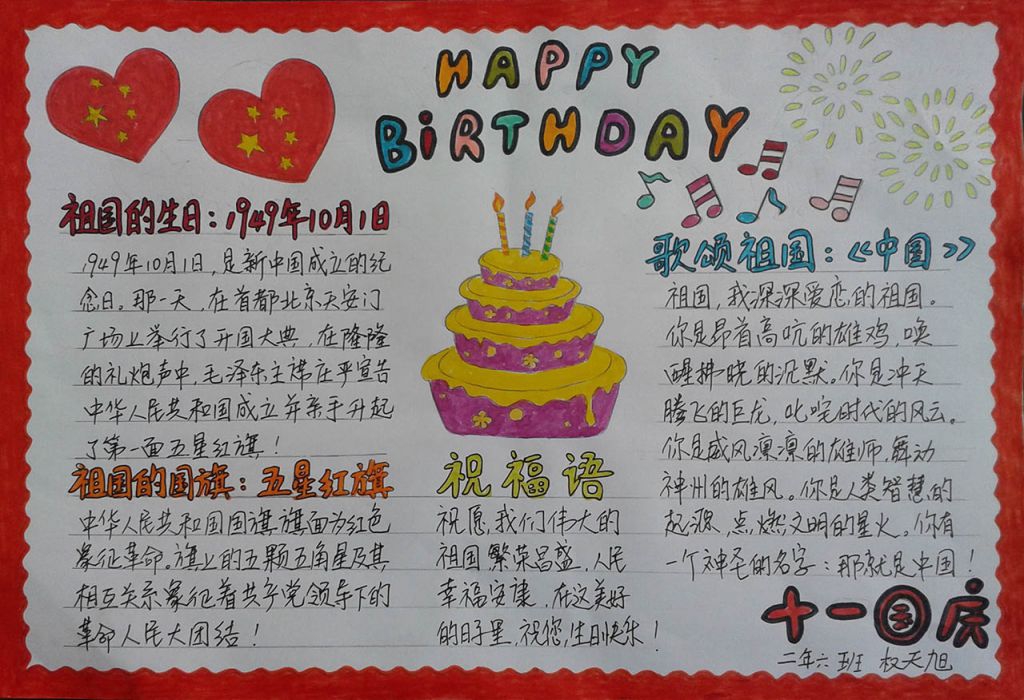 HAPPY
BiRTHDAY
祖国的生日:1949年10月1日
1949年10月1日,是新中国成立的纪
念日。那一天,在首都北京天安门
广场上举行了开国大典,在隆隆
的礼炮声中,毛泽东主席庄严宣告
中华人民共和国成立并亲手升起
了第一面五星红旗!
祖国的国旗:五星红旗
中华人民共和国国旗旗面为红色
象征革命,旗上的五颗五角星及其
相互关系象征着共产党领导下的
革命人民大团结!
祝福语
祝愿,我们伟大的
祖国繁荣昌盛,人民
幸福安康,在这美好
的日子里,祝您,生日快乐!
歌颂祖国:《中国》
祖国,我深深爱恋的祖国。
你是昂首高吭的雄鸡,唤
醒拂晓的沉默。你是冲天
腾飞的巨龙,叱咤时代的风云。
你是威风凛凛的雄师,舞动
神州的雄风。你是人类智慧的
起源,点燃文明的星火。你有
一个神圣的名字:那就是中国!
十一国庆
二年六班 权天旭